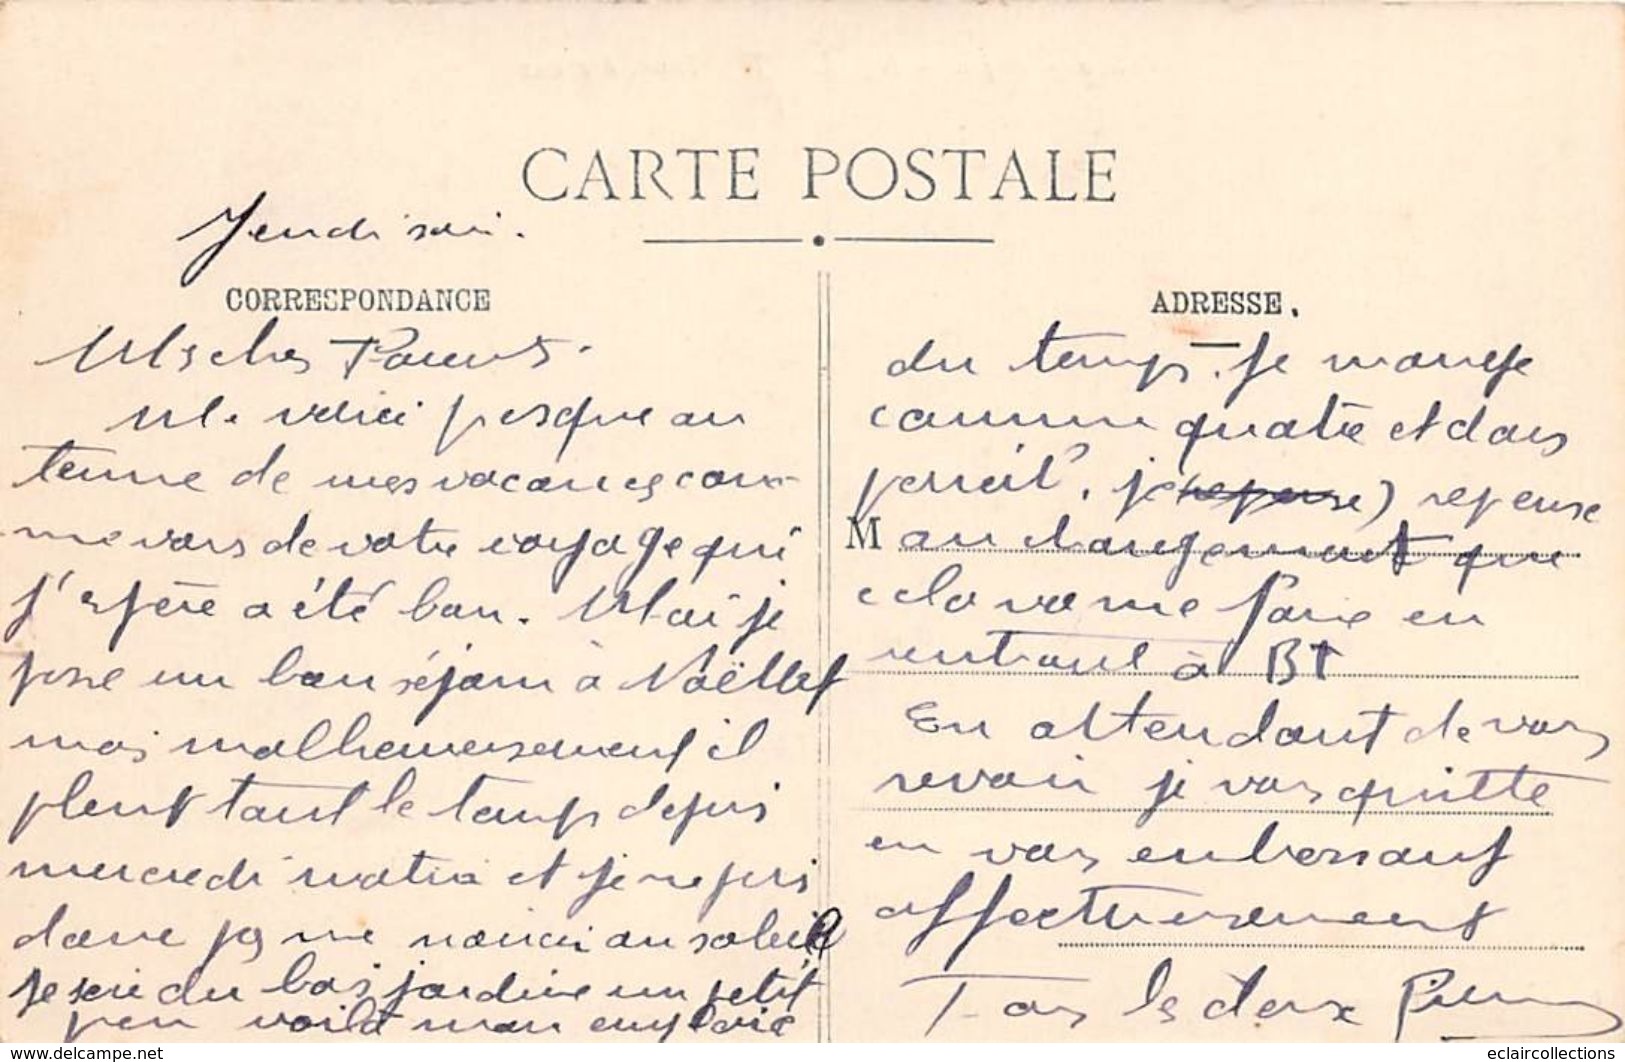 CARTE POSTALE
Jeudi soir.
CORRESPONDANCE
Mes chers Parents.
Me voici presque au
terme de mes vacances com-
me vous de votre voyage qui
j'espère a été bon. Moi je
passe un bon séjour à Noëllet
mais malheureusement il
pleut tout le temps depuis
mercredi matin et je ne puis
donc pas me noircir au soleil
je scie du bois jardine un petit
peu voilà mon emploie
ADRESSE.
du temps. Je mange
comme quatre et dors
pareil. je (repense) repense
M au changement que
cela va me faire en
rentrant à BT
En attendant de vous
revoir je vous quitte
en vous embrassant
affectueusement
Tous les deux
eclaircollections
www.delcampe.net